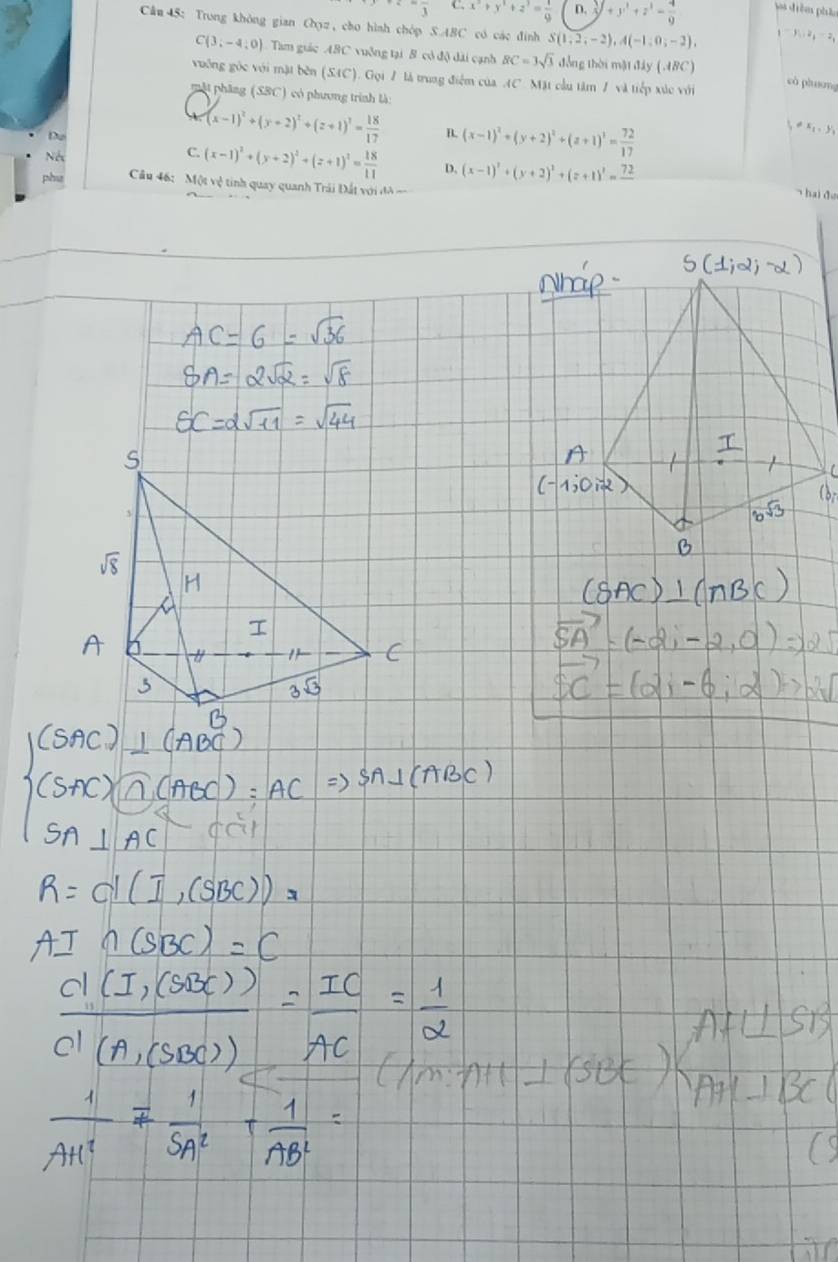 C. x² + y² + z² = 1/9 D.
Câu 45: Trong không gian Oxyz, cho hình chóp S.ABC có các đỉnh S(1;2;−2), A(−1;0;−2),
C(3;−4;0). Tam giác ABC vuông tại B có độ dài cạnh BC = 3√3 đồng thời mặt đáy (ABC)
vuông góc với mặt bên (SAC). Gọi I là trung điểm của AC. Mặt cầu tâm I và tiếp xúc với
mặt phẳng (SBC) có phương trình là:
A. (x−1)² + (y+2)² + (z+1)² = 18/17
B. (x−1)² + (y+2)² + (z+1)² = 72/17
C. (x−1)² + (y+2)² + (z+1)² = 18/11
D. (x−1)² + (y+2)² + (z+1)² = 72
Câu 46: Một vệ tinh quay quanh Trái Đất với
có phương
hai
Nháp -
S(1;2;-2)
AC = 6 = √36
SA = 2√2 = √8
SC = 2√11 = √44
A
(-1;0;-2)
I
C
3√3
B
S
√8
H
I
A
C
3
3√3
B
(SAC) ⊥ (ABC)
SA = (-2;-2,0) =>
SC = (2;-6;2) =>
(SAC) ⊥ (ABC)
(SAC) ∩ (ABC) = AC => SA ⊥ (ABC)
SA ⊥ AC
R = d(I,(SBC)) =
AI ∩ (SBC) = C
d(I,(SBC)) / d(A,(SBC)) = IC / AC = 1/2
C/m: AH ⊥ (SBC)
AH ⊥ SB
AH ⊥ BC
1/AH² = 1/SA² + 1/AB² =